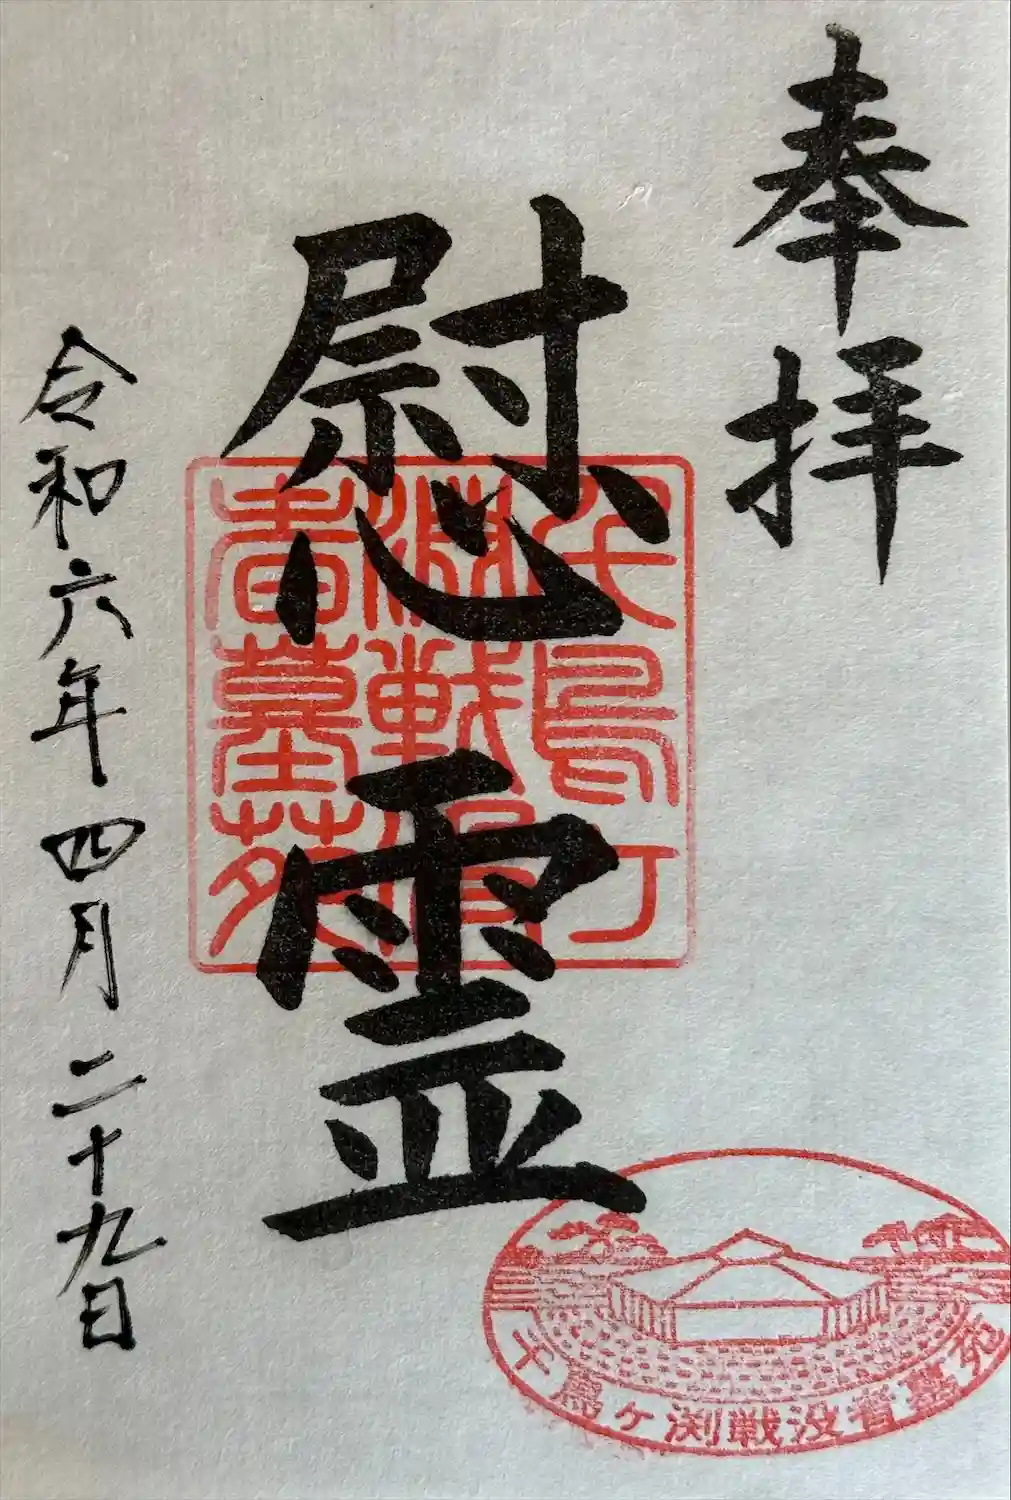 奉拝
慰霊
千鳥ケ
淵戦没
者墓苑
令和六年四月二十九日
千鳥ケ渕戦没者墓苑